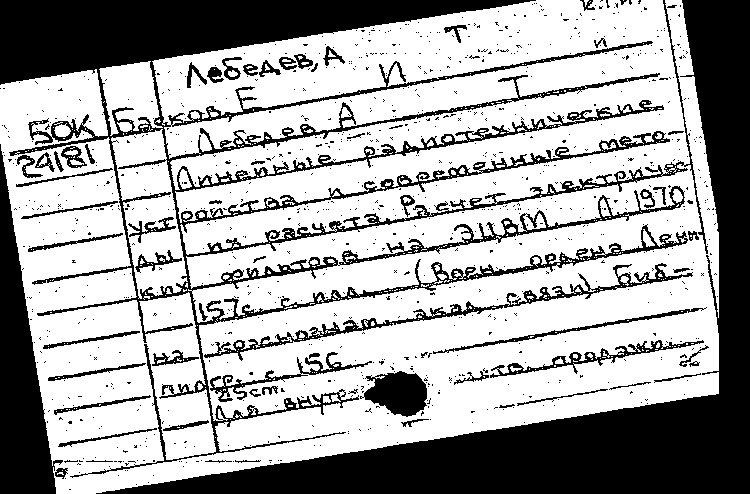 Лебедев, А Т
БОК Басков, Е И и
24181 Лебедев, А Т
Линейные радиотехнические
устройства и современные мето-
ды их расчета. Расчет электричес
ких фильтров на ЭЦВМ. Л., 1970.
157с. с илл. (Воен. ордена Лени
на краснознам. акад. связи). Биб-
лиогр.: с 156
25см.
Для внутр продажи.